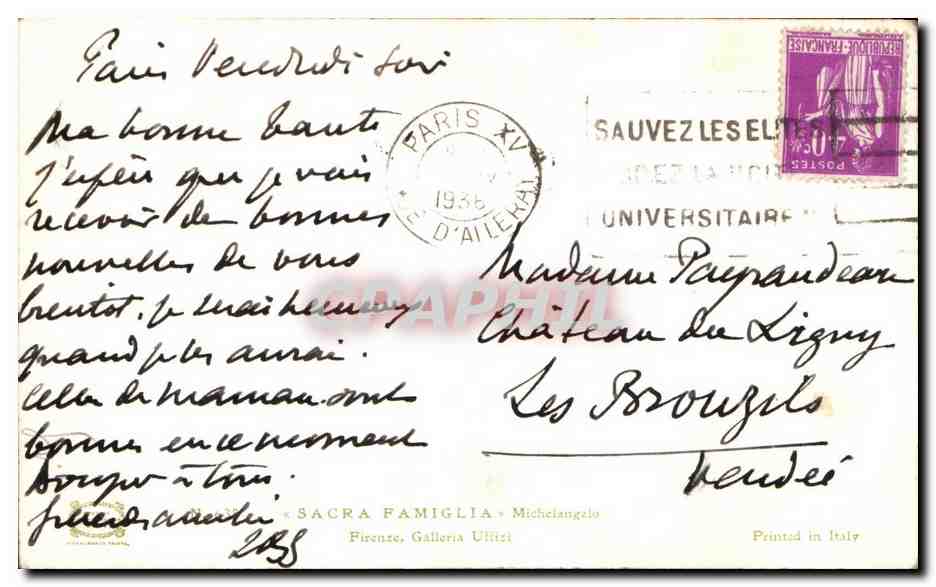 Paris Vendredi soir
Ma bonne tante
j'espère que je vais
recevoir de bonnes
nouvelles de vous
bientôt, je serai heureuse
quand je les aurai.
Celles de maman sont
bonnes en ce moment
à tous.
PARIS XV
1936
R. D'ALLERAY
SAUVEZ LES ELITES
UNIVERSITAIRE
REPUBLIQUE-FRANÇAISE
POSTES
40c
Madame Payraudeau
Château du Ligny
Les Brouzils
Vendée
CPAPHIL
« SACRA FAMIGLIA » Michelangelo
Firenze, Galleria Uffizi
Printed in Italy